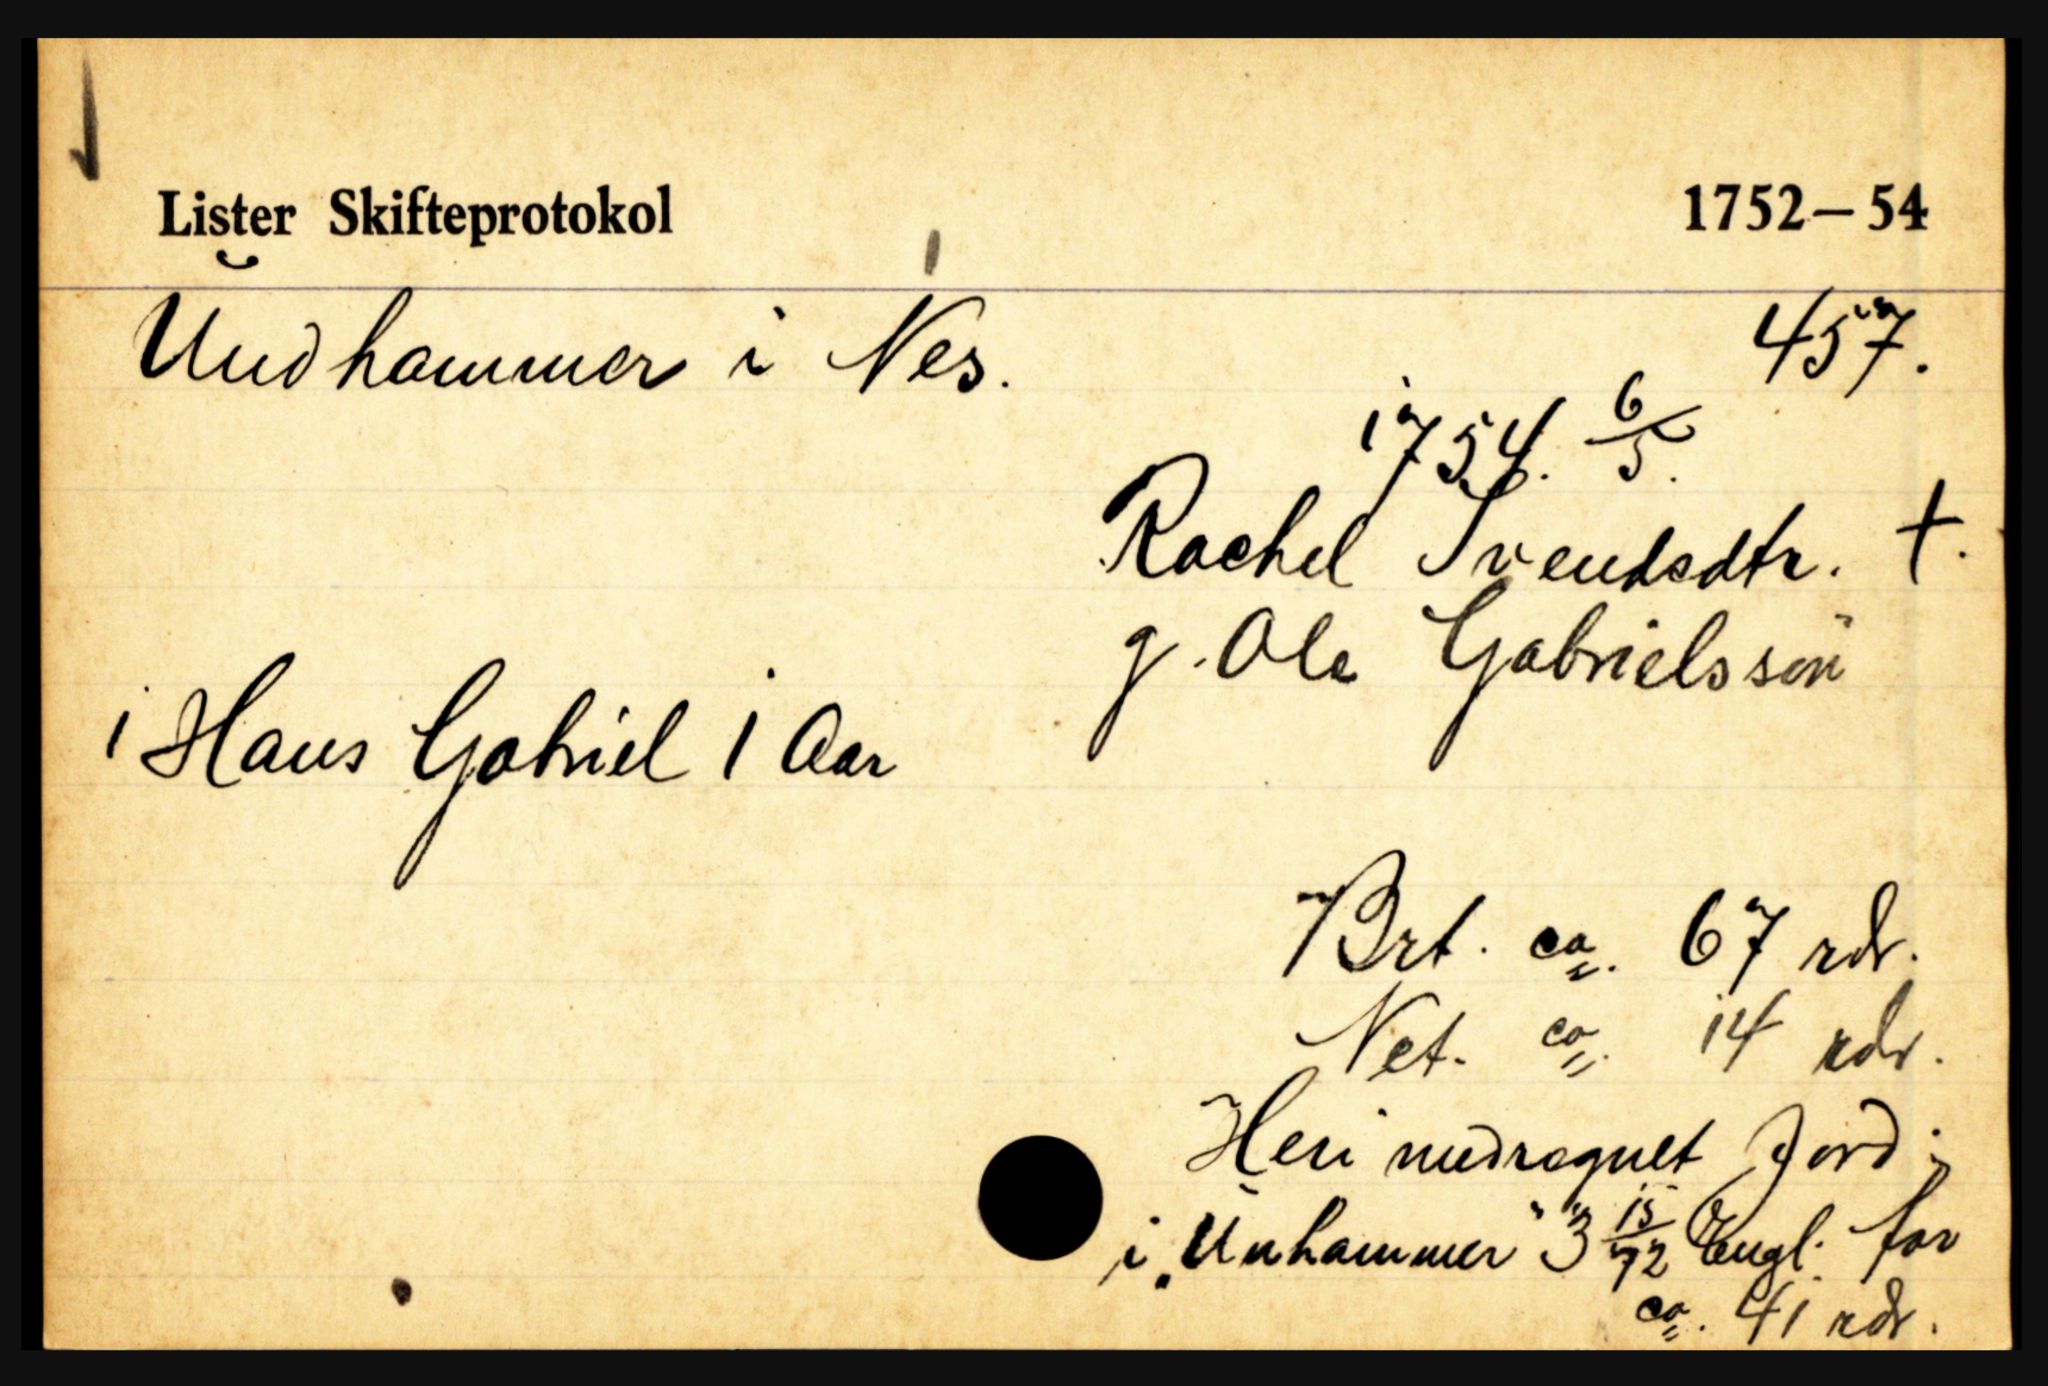 Lister Skifteprotokol 1752–54
Undhammer i Nes. 457.
1754. 6/5.
Rachel Svendsdtr. †.
g. Ole Gabrielssøn
1 Hans Gabriel 1 Aar
Brt. ca. 67 rdr.
Net. ca. 14 rdr.
Heri medregnet Jord
i „Unhammer" 3 15/72 Engl. for
ca. 41 rdr.